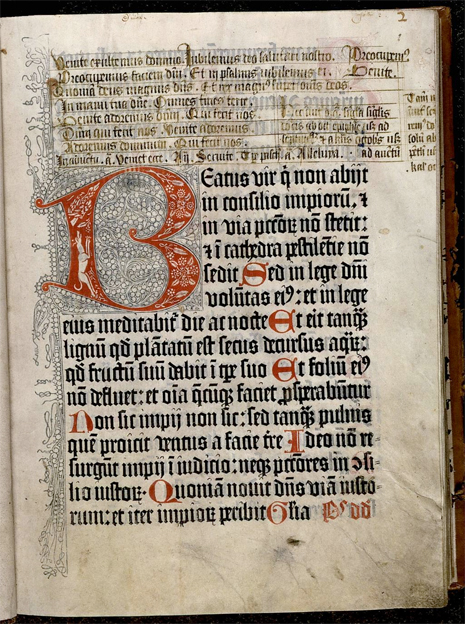 2
Venite exultemus domino Jubilemus deo salutari nostro. Preocupem⁹
Preocupemus faciem dnī. Et in psalmis iubilemus ei. Venite.
Quoniā deus magnus dns. Et rex magn⁹ sup om̄s deos.
In manu tua dnē. Omnes fines terre.
Venite adoremus dnm̄. Qui fecit nos.
Dnm̄ qui fecit nos. Venite adoremus.
Adoremus dominum. Qui fecit nos.
Alleluia
Beatus vir q̄ non abijt
in consilio impiorū, &
in via pctōꝝ nō stetit:
& ī cathedra pestilētie nō
sedit Sed in lege dnī
volūtas ei⁹: et in lege
eius meditabit̄ die ac nocte Et erit tanqȝ
lignū qd̄ plātatū est secus decursus aqȝ:
qd̄ fructū suū dabit ī tꝑe suo Et foliū ei⁹
nō defluet: et oīa q̄cūqȝ faciet ꝓsperabūtur
Non sic impij non sic: sed tanqȝ puluis
quē proicit ventus a facie tr̄e Ideo nō re-
surgūt impij ī iudicio: neqȝ pctōres in ɔsi-
lio iustoꝝ Quoniā nouit dn̄s viā iusto
rum: et iter impioꝝ peribit Gl̄ia Pˢ dd